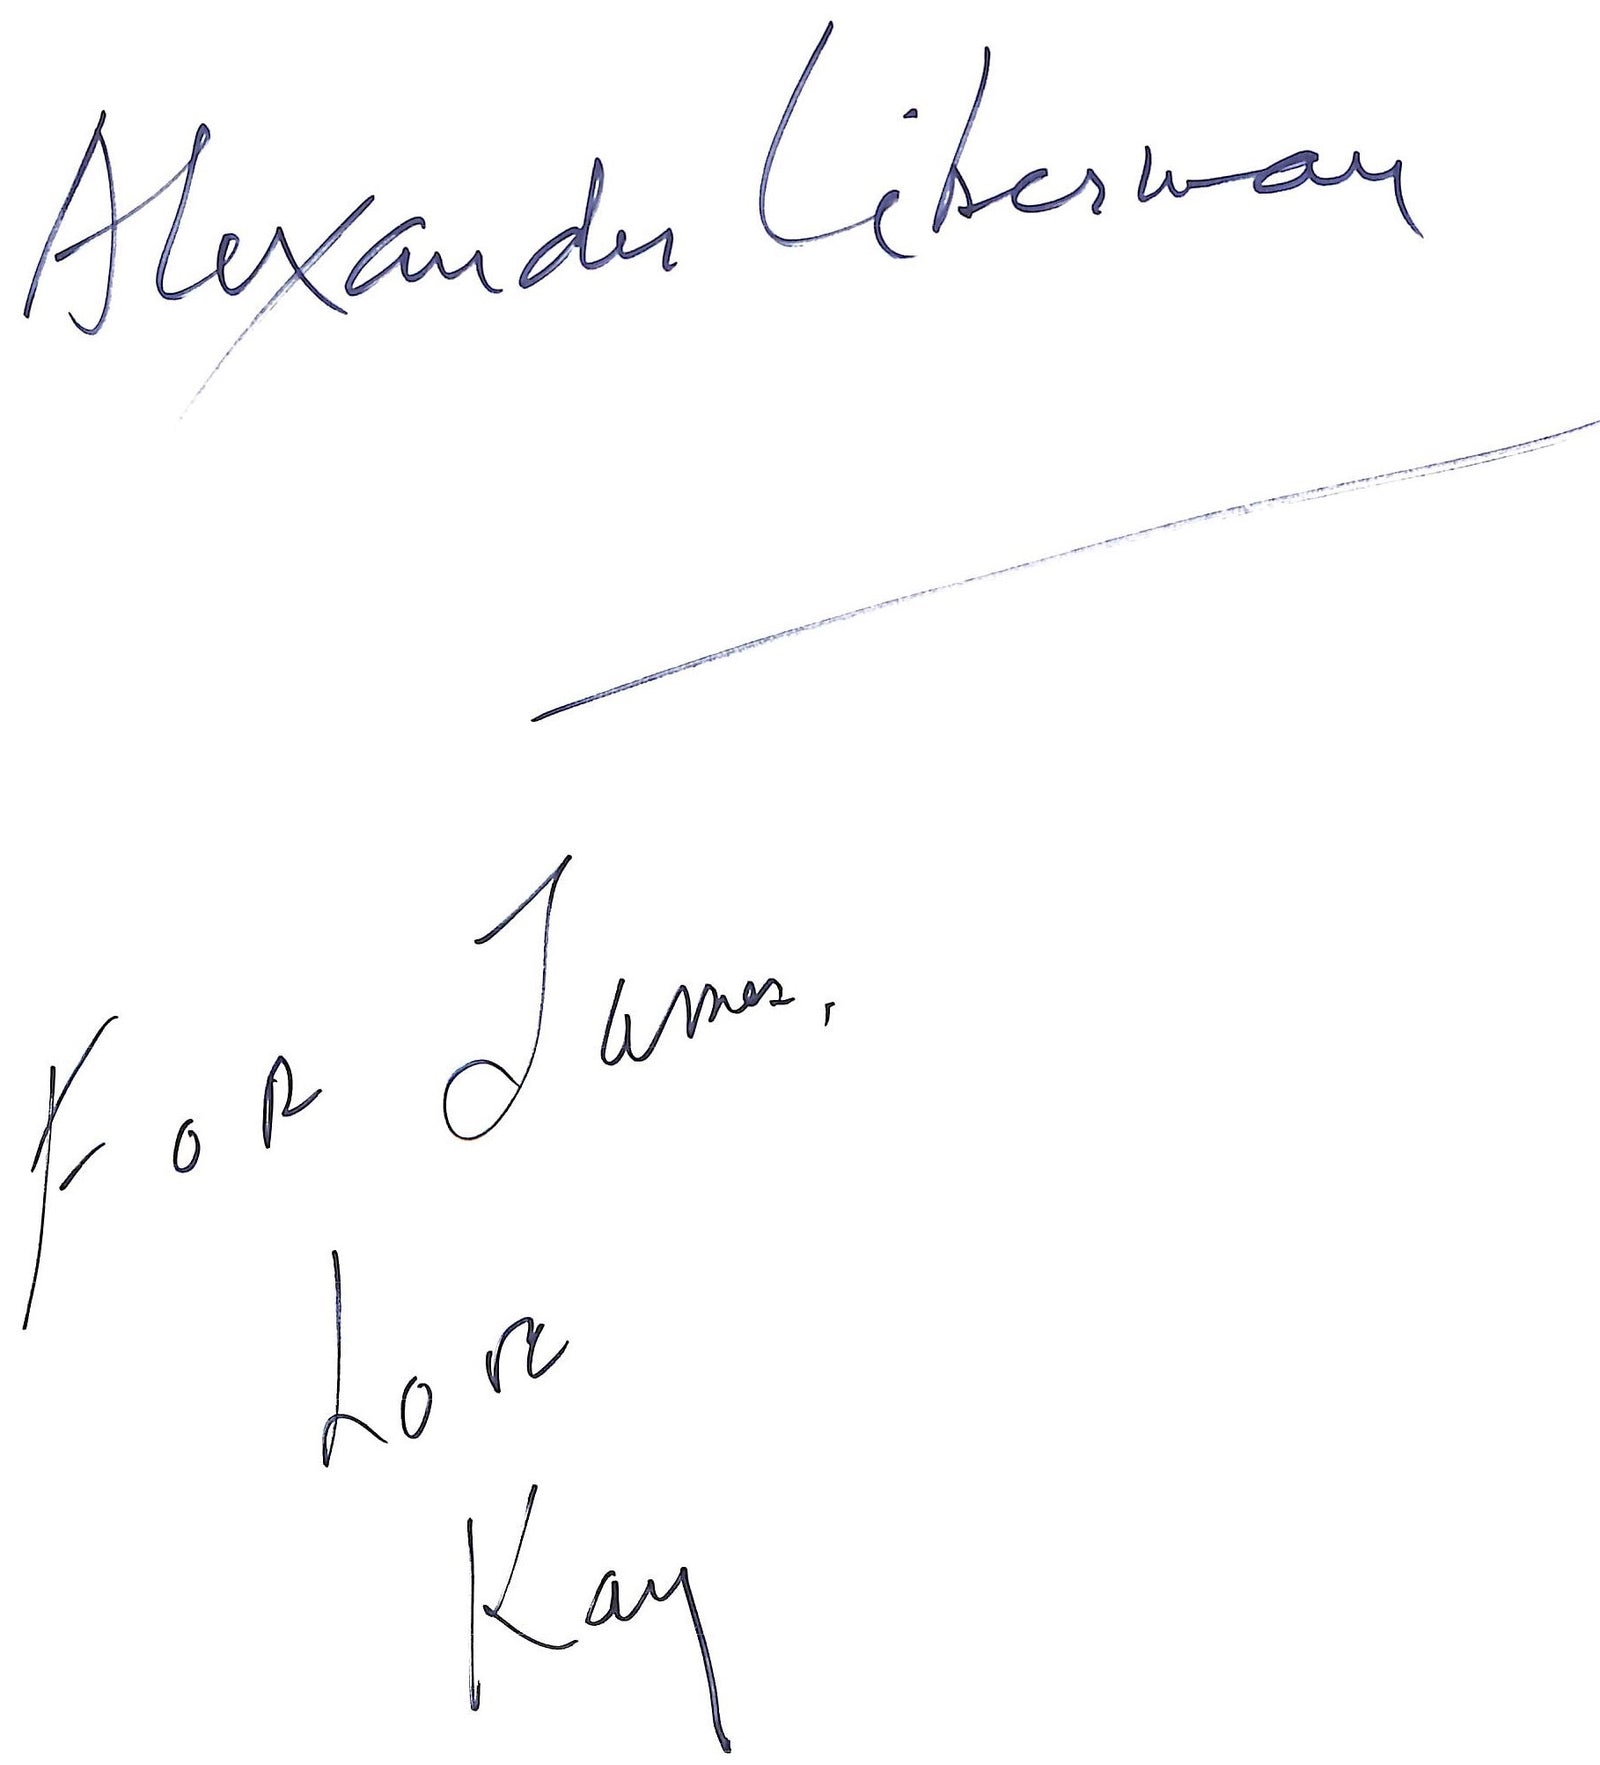 Alexander Liberman
For James,
Love
Kay